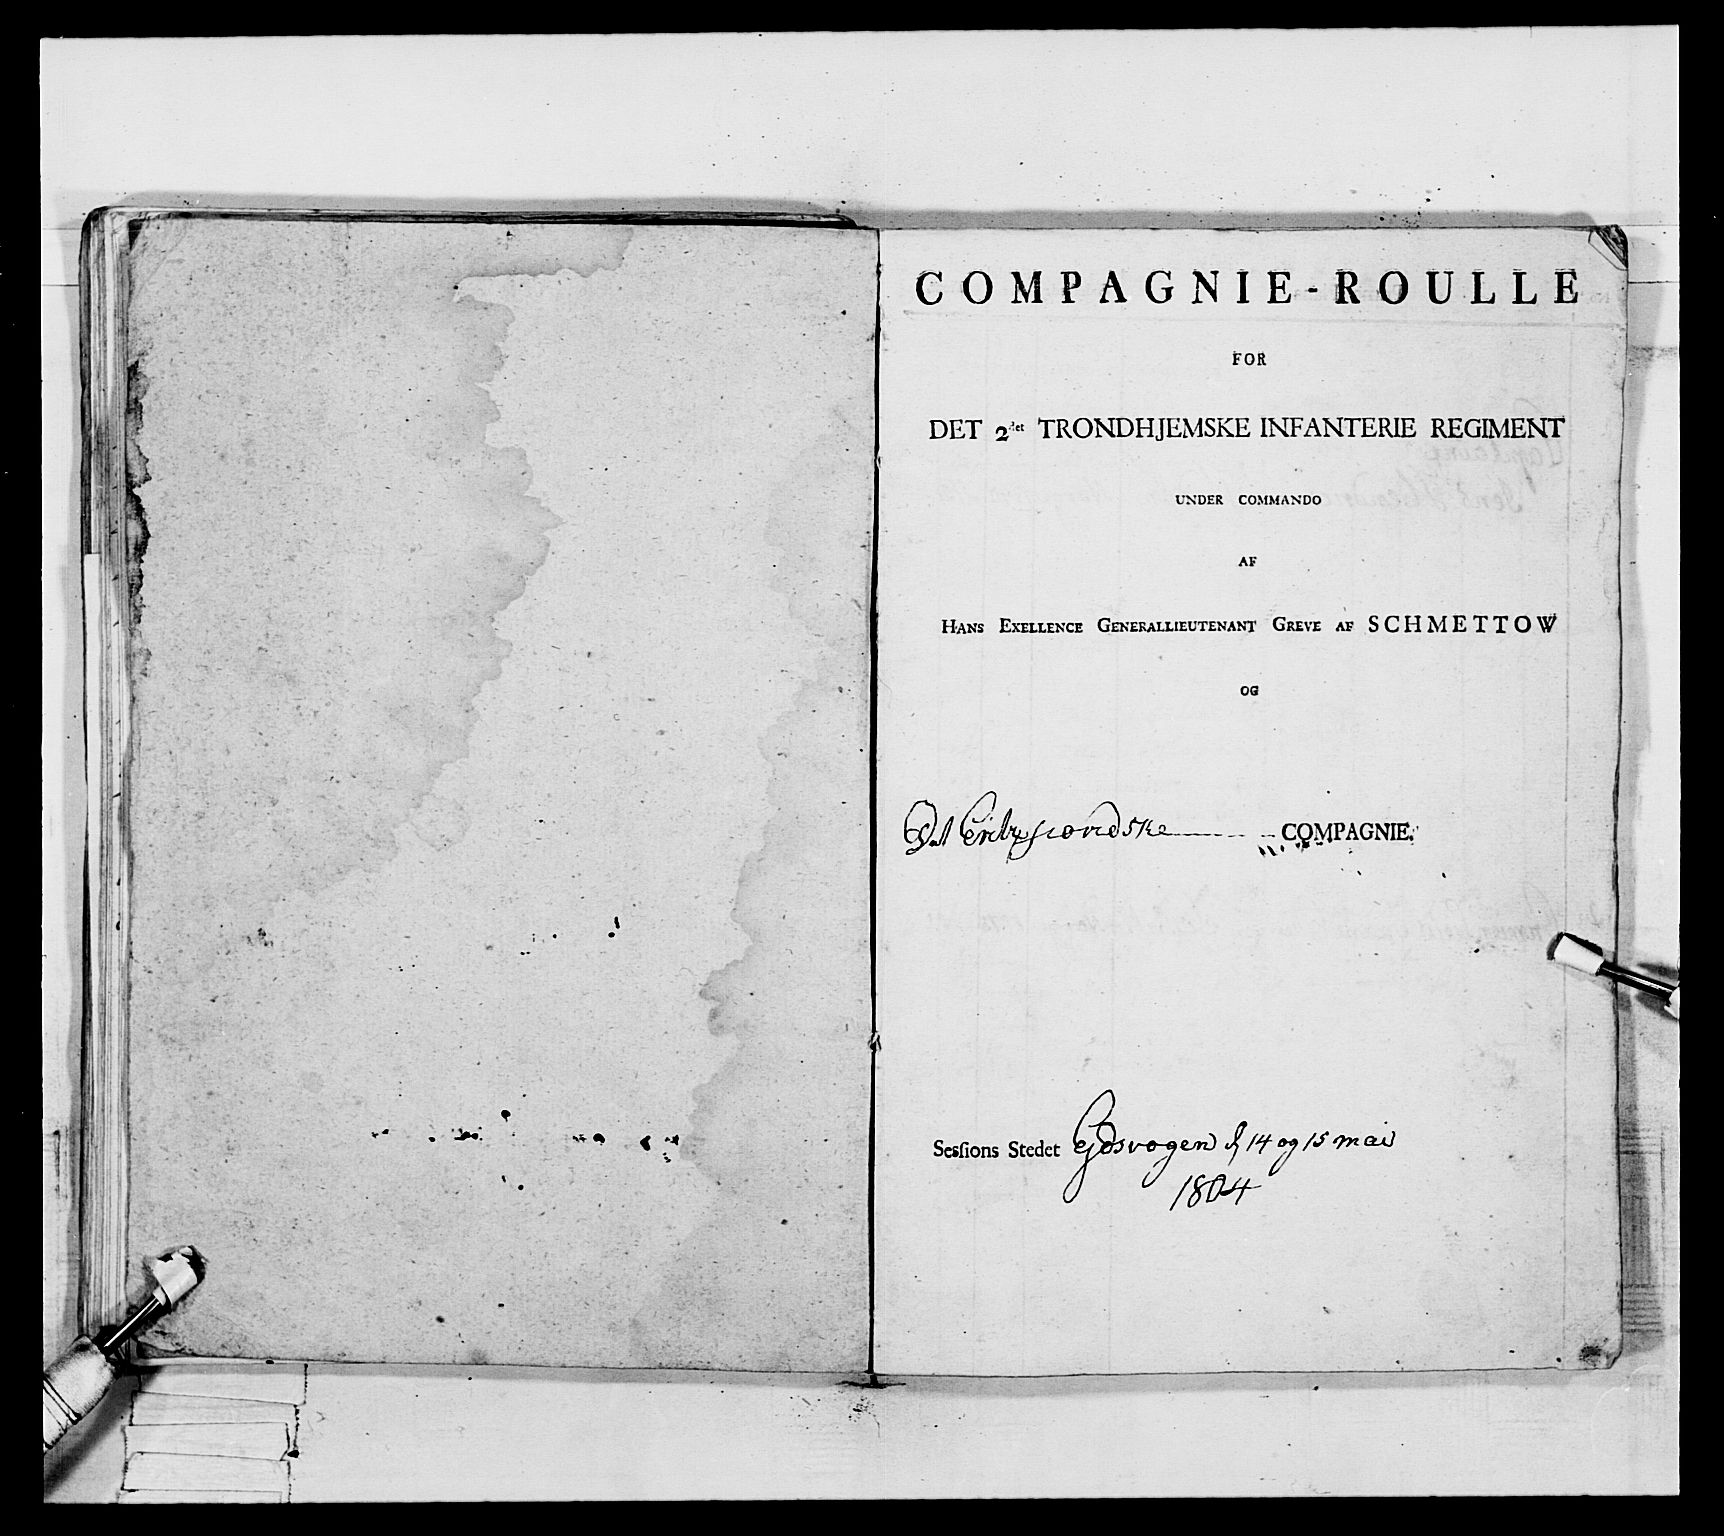 COMPAGNIE-ROULLE
FOR
DET 2det TRONDHJEMSKE INFANTERIE REGIMENT
UNDER COMMANDO
AF
HANS EXELLENCE GENERALLIEUTENANT GREVE AF SCHMETTOW
OG
COMPAGNIE.
Sesſions Stedet Ejdsvogen d 14 og 15 mai
1804